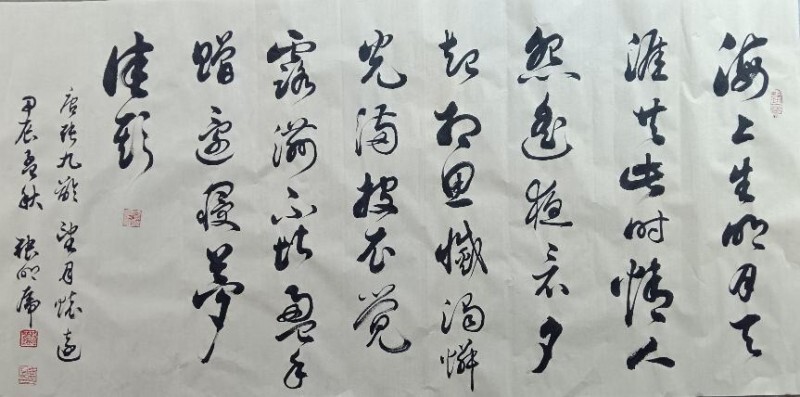 海上生明月天
涯共此时情人
怨遥夜竟夕
起相思滅燭憐
光满披衣觉
露滋不堪盈手
赠还寝梦
佳期
唐张九龄 望月怀远
甲辰孟秋 张明